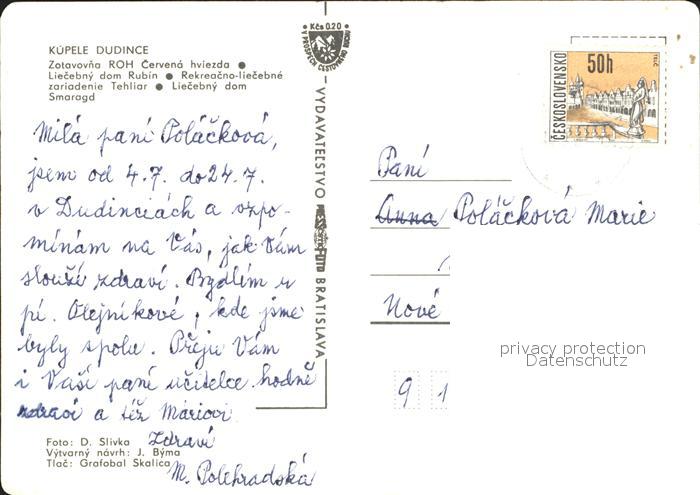 KÚPELE DUDINCE
Zotavovňa ROH Červená hviezda ●
Liečebný dom Rubín ● Rekreačno-liečebné
zariadenie Tehliar ● Liečebný dom
Smaragd
Milá paní Poláčková,
jsem od 4.7. do 24.7.
v Dudinciách a vzpo-
mínám na Vás, jak Vám
slouží zdraví. Bydlím u
pí. Olejníkové, kde jsme
byly spolu. Přeju Vám
i Vaší paní učitelce hodně
zdraví a též Máriovi
Zdraví
M. Polehradská
Foto: D. Slivka
Výtvarný návrh: J. Býma
Tlač: Grafobal Skalica
Kčs 0.20
VYDAVATEĽSTVO
BRATISLAVA
ČESKOSLOVENSKO
50h
TELČ
Paní
Anna Poláčková Marie
Nové
9 1
privacy protection
Datenschutz